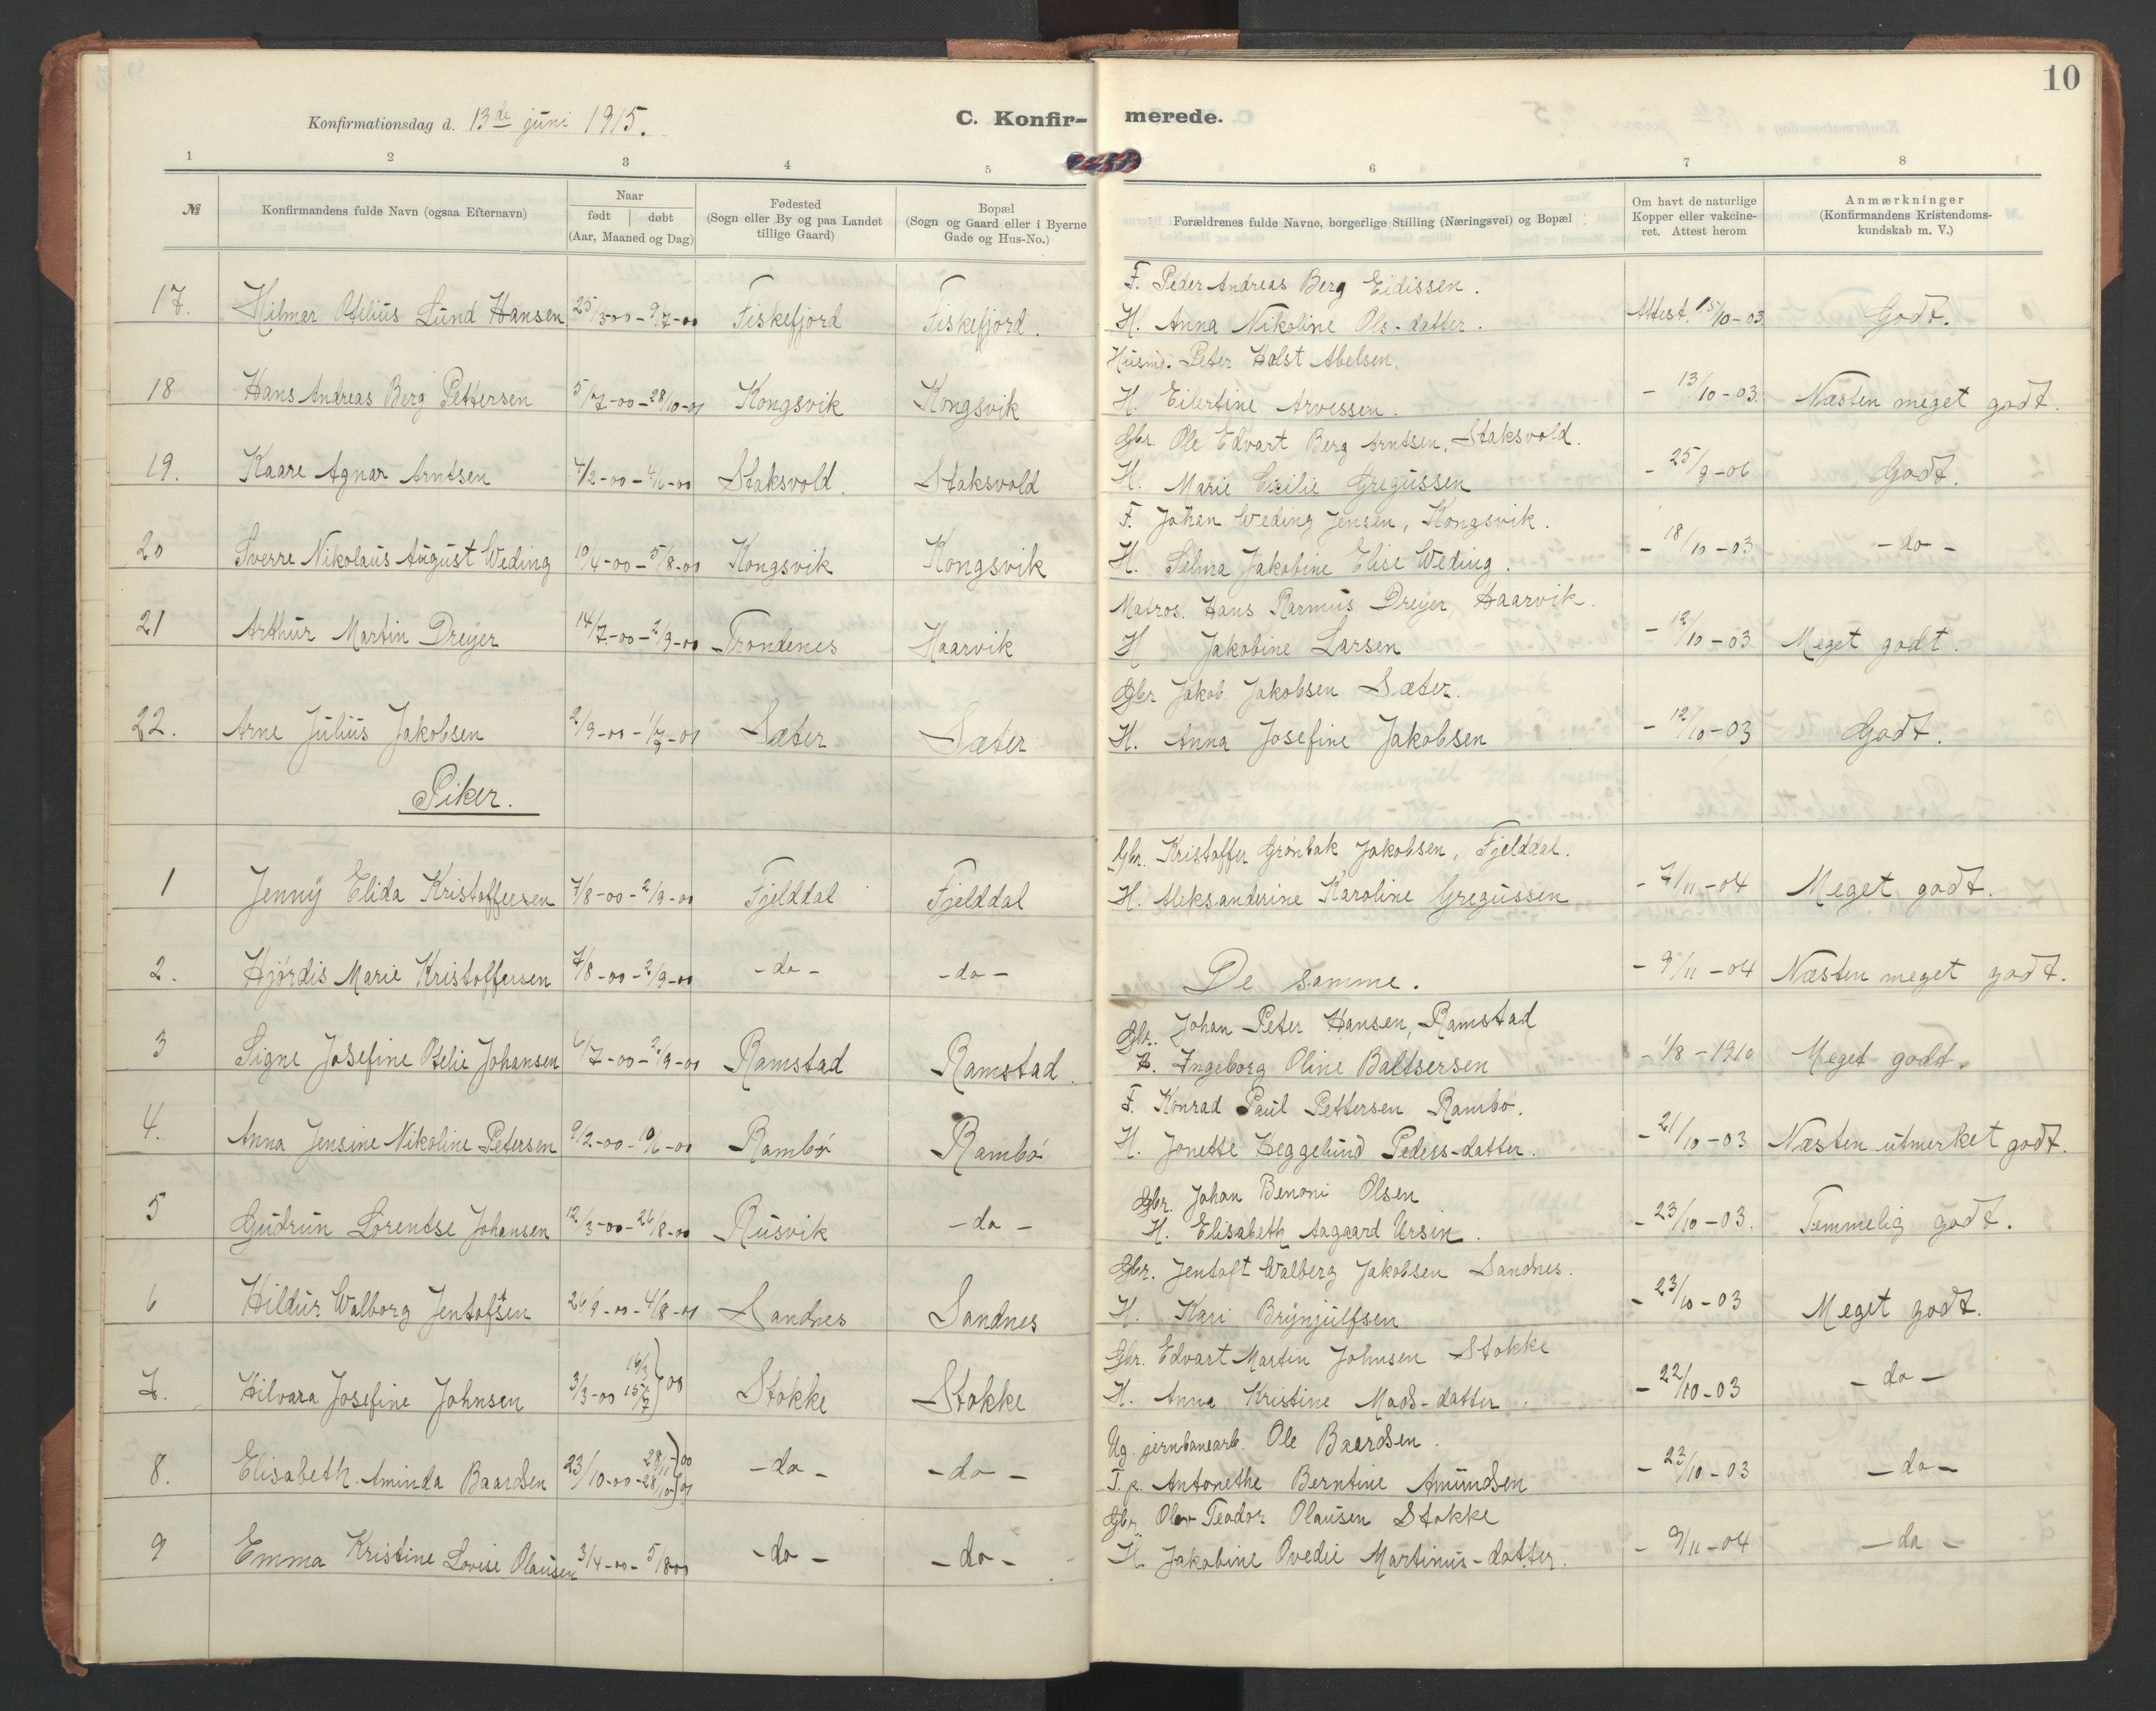 10
Konfirmationsdag d. 13de juni 1915.
C. Konfir- merede.
1 2 3 4 5 6 7 8
№ Konfirmandens fulde Navn (ogsaa Efternavn) Naar født døbt (Aar, Maaned og Dag) Fødested (Sogn eller By og paa Landet tillige Gaard) Bopæl (Sogn og Gaard eller i Byerne Gade og Hus-No.) Forældrenes fulde Navne, borgerlige Stilling (Næringsvei) og Bopæl Om havt de naturlige Kopper eller vakcine- ret. Attest herom Anmærkninger (Konfirmandens Kristendoms- kundskab m. V.)
F. Peder Andreas Berg Eidissen.
17. Hilmar Otelius Lund Hansen 25/5-00 - 9/7-00 Fiskefjord Fiskefjord. H. Anna Nikoline Ols-datter. Attest. 15/10-03 Godt.
Husmd. Peter Holst Abelsen.
18 Hans Andreas Berg Pettersen 5/7-00 - 28/10-01 Kongsvik Kongsvik H. Eilertine Arvessen. - 13/10-03. Næsten meget godt.
Gbr. Ole Edvart Berg Arntsen, Staksvold.
19. Kaare Agnar Arntsen 4/2-00 - 4/6-00 Staksvold. Staksvold H. Marie Cecilie Gregussen - 25/9-06 Godt.
F. Johan Weding Jensen, Kongsvik.
20 Sverre Nikolaus August Weding 10/4-00 - 5/8-00 Kongsvik Kongsvik H. Selma Jakobine Elise Weding. - 18/10-03 - do -
Matros. Hans Rasmus Dreyer, Haarvik.
21 Arthur Martin Dreyer 14/7-00 - 2/9-00 Trondenes Haarvik H Jakobine Larsen - 12/10-03 Meget godt.
Gbr Jakob Jakobsen Sæter.
22. Arne Julius Jakobsen 2/9-00 - 1/7-01 Sæter Sæter H. Anna Josefine Jakobsen - 12/10-03 Godt.
Piker.
Gbr. Kristoffer Grønbak Jakobsen, Fjelddal.
1 Jenny Elida Kristoffersen 7/8-00 - 2/9-00 Fjelddal Fjelddal H. Aleksanderine Karoline Gregussen - 7/11-04 Meget godt.
2. Hjørdis Marie Kristoffersen 7/8-00 - 2/9-00 - do - - do - De samme. - 9/11-04 Næsten meget godt.
Gbr. Johan Peter Hansen, Ramstad
3 Signe Josefine Otelie Johansen 6/7-00 - 2/9-00 Ramstad Ramstad. H. Ingeborg Oline Baltsersen - 1/8-1910 Meget godt.
F. Konrad Paul Pettersen Rambø.
4. Anna Jensine Nikoline Petersen 9/2-00 - 10/6-00 Rambø Rambø H. Jonette Heggelund Peders-datter. - 21/10-03 Næsten utmerket godt.
Gbr. Johan Benoni Olsen
5 Gudrun Lorentse Johansen 12/3-00 - 26/8-00 Rusvik - do - H. Elisabeth Aagaard Ursin. - 23/10-03. Temmelig godt.
Gbr. Jentoft Walberg Jakobsen Sandnes.
6 Hildur Walborg Jentoftsen 26/9-00 - 4/8-01 Sandnes Sandnes H. Kari Brynjulfsen - 23/10-03 Meget godt.
Gbr. Edvart Martin Johnsen Stokke
7. Hilvara Josefine Johnsen 3/3-00 16/3 15/7 } 00 Stokke Stokke H. Anna Kristine Mads-datter. - 22/10-03 - do -
Ug. jernbanearb. Ole Baardsen.
8. Elisabeth Aminda Baardsen 23/10-00 - 28/11 } 00 28/10 } 01 - do - - do - T. p. Antonethe Berntine Amundsen - 23/10-03 - do -
Gbr Olav Teodor Olausen Stokke
9 Emma Kristine Lovise Olausen 3/4-00 - 5/8 00 - do - - do - H. Jakobine Ovedie Martinus-datter. - 9/11-04 - do -